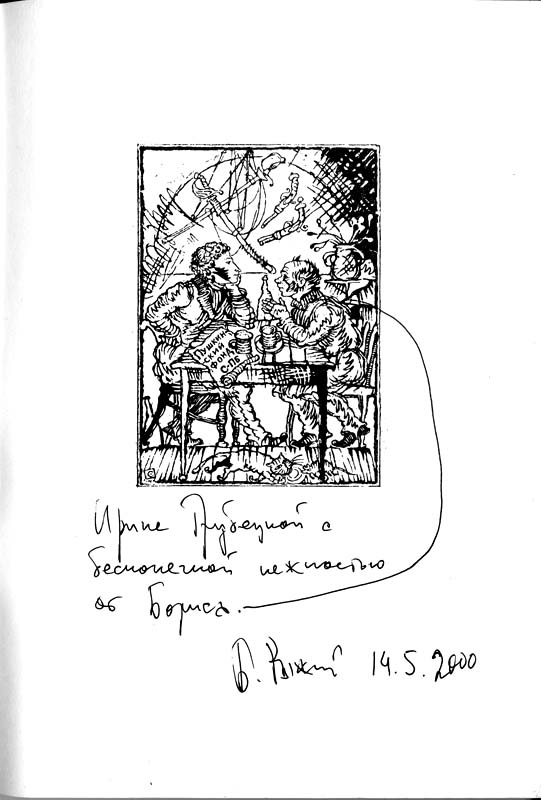 ПУШКИН
СКИЙ
ФОНД
СПБ
Ирине Трубецкой с
бесконечной нежностью
от Бориса.
Б. Рыжий 14.5.2000